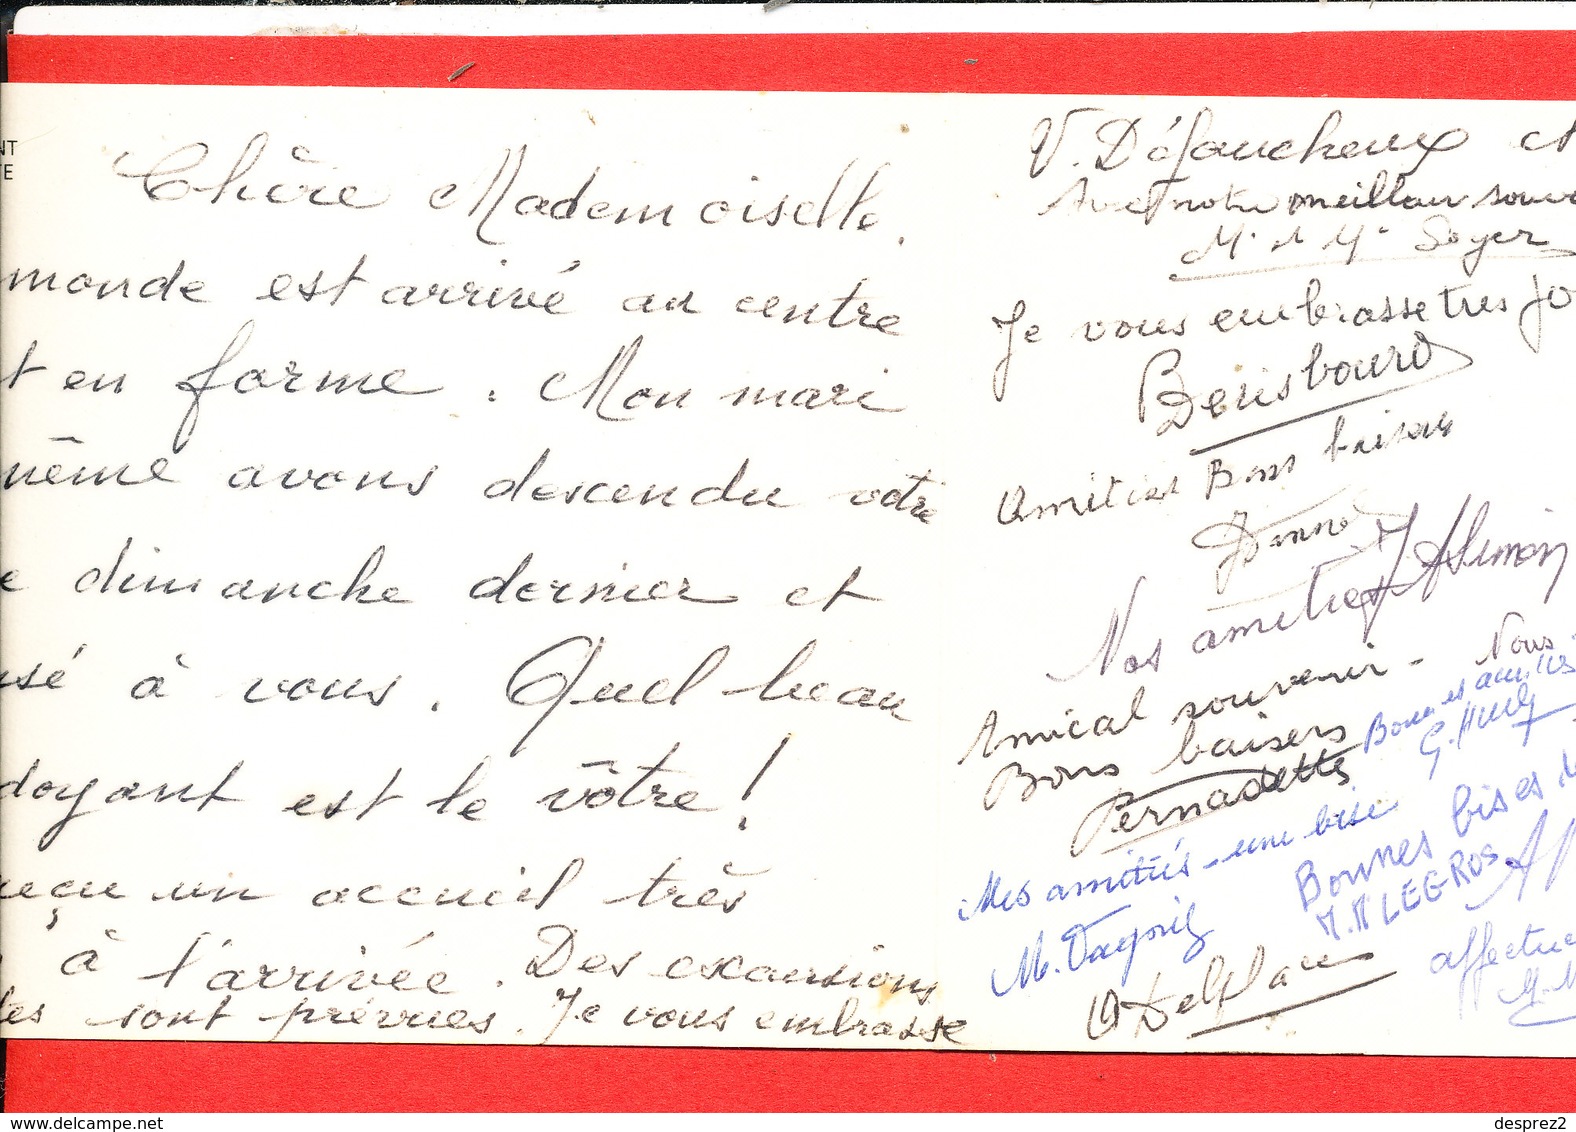 NT
TE
Chère Mademoiselle.
monde est arrivé au centre
t en forme. Mon mari
même avons descendu votre
e dimanche dernier et
nsé à vous. Quel beau
doyant est le vôtre!
reçu un accueil très
à l'arrivée. Des excursions
les sont prévues. Je vous embrasse
V. Défaucheux et
Avec notre meilleur souve
M. et Me Soyer
Je vous embrasse tres fo
Berisbourd
Amitiés Bons baisers
Nos amitiés Simon
Amical souvenir - Nous
Bons baisers
Bernadette
Bonnes amitiés
G.
Mes amitiés - une bise
M.
Bonnes bises
M LEGROS
A Delplan
affectue
delcampe.net
desprez2